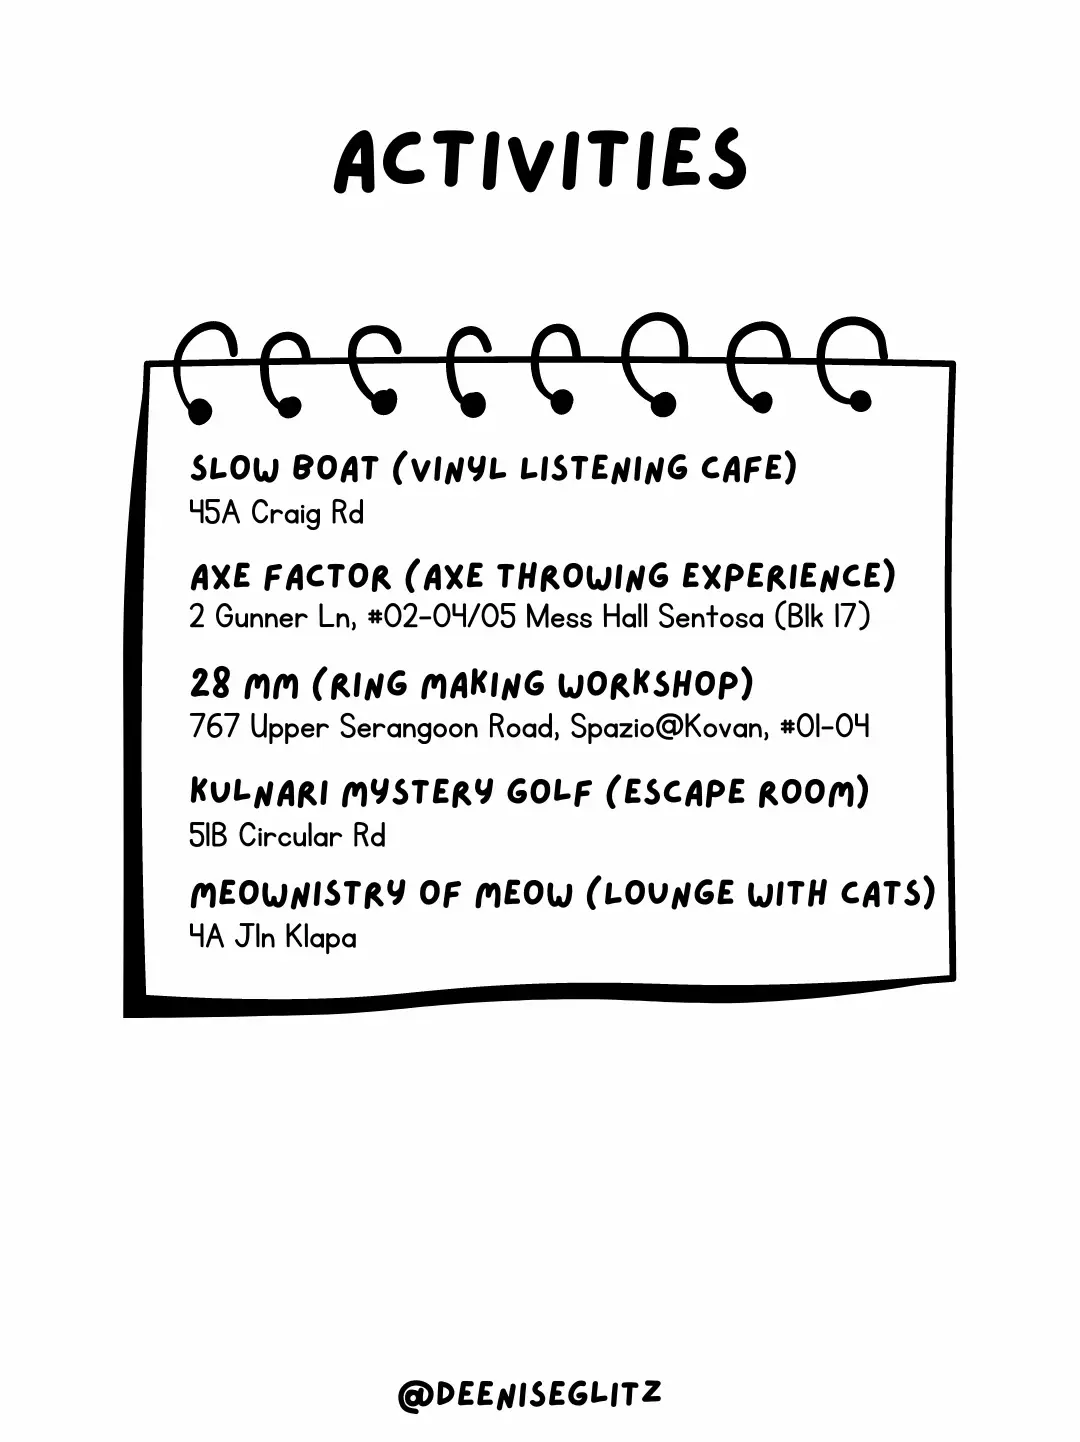 ACTIVITIES
SLOW BOAT (VINYL LISTENING CAFE)
45A Craig Rd
AXE FACTOR (AXE THROWING EXPERIENCE)
2 Gunner Ln, #02-04/05 Mess Hall Sentosa (Blk 17)
28 MM (RING MAKING WORKSHOP)
767 Upper Serangoon Road, Spazio@Kovan, #01-04
KULNARI MYSTERY GOLF (ESCAPE ROOM)
51B Circular Rd
MEOWNISTRY OF MEOW (LOUNGE WITH CATS)
4A Jln Klapa
@DEENISEGLITZ